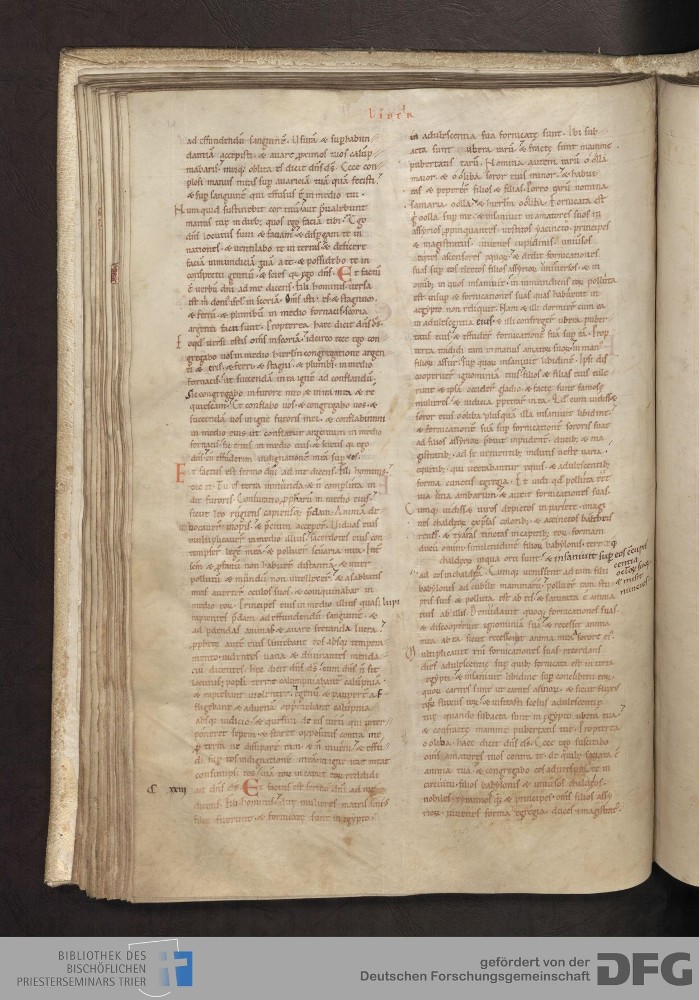 LIBER
ad effundendū sanguinē. Usurā & supabun
dantiā accepisti. & auare proximos tuos calūp
niabaris. meiq; oblita es dicit dn̄s d̄s. Ecce con
plosi manus meas sup auariciā tuā quā fecisti.
& sup sanguinē qui effusus ē in medio tui.
Num quid sustinebit cor tuū aut p̄ualebunt
manus tuę in dieb; quos ego faciā tibi. Ego
dn̄s locutus sum & faciam. & dispgam te in
nationes. & uentilabo te in terras. & deficere
faciā inmundiciā tuā a te. & possidebo te in
conspectu gentiū. & scies qa ego dn̄s. Et factū
ē uerbū dn̄i ad me dicens. Fili hominis. uersa
est m̄ domus isrl̄ in scoriā. Om̄s isti. es & stagnum.
& ferrū. & plumbū in medio fornacis. scoria
argenti facti sunt. Propterea haec dicit dn̄s d̄s.
Eo qd uersi estis om̄s in scoriā. idcirco ecce ego con
gregabo uos in medio hierl̄m congregatione argen
ti & eris. & ferri & stagni. & plumbi. in medio
fornacis. ut succendā in ea ignē ad conflandū.
Sic congregabo in furore meo & in ira mea. & re
quiescam. Et conflabo uos. & congregabo uos. &
succendā uos in igne furoris mei. & conflabimini
in medio eius ut conflatur argentum in medio
fornacis. sic eritis in medio eius. & scietis qa ego
dn̄s cū effuderim indignationē meā sup uos.
Et factus est sermo dn̄i ad me dicens. Fili hominis.
dic ei. Tu es terra inmunda. & n̄ compluta in
die furoris. Coniuratio pphetarū in medio eius.
sicut leo rugiens capiensq; p̄dam. Animā de
uorauer̄. opes & p̄cium acceper̄. Uiduas eius
multiplicauer̄ in medio illius. Sacerdotes eius con
tempser̄ legē meā. & polluer̄ sc̄uaria mea. Int̄
sc̄m & pfanū non habuer̄ distantiā. & inter
pollutū & mundū non intellexer̄. & a sabbatis
meis auerter̄ oculos suos. & coinquinabar in
medio eorū. Principes eius in medio illius quasi lupi
rapientes p̄dam. ad effundendū sanguinē. &
ad pdendas animas & auare sectanda lucra.
Pphetę aute eius liniebant eos absq; tempera
mento. uidentes uana & diuinantes menda
ciū. dicentes. haec dicit dn̄s d̄s. cum dn̄s n̄ sit
locutus. populi terre calumpniabant calūpniā.
& rapiebant uiolenter. Egenū & pauperē af
fligebant. & aduenā opprimebant calūpnia
absq; iudicio. & quesiui de eis uirū qui inter
poneret sepem. & staret oppositus contra me
p terra ne dissiparē eam. & n̄ inueni. & effu
di sup eos indignationē meā. in igne irae meae
consumpsi eos. uiā eorū in caput eorū reddidi
ait dn̄s d̄s. Et factus est sermo dn̄i ad me
C XXIII
dicens. Fili hominis. due mulieres matris unius
filie fuerunt. & fornicate sunt in egypto.
in adulescentia sua fornicate sunt. Ibi sub
acta sunt ubera earū. & fracte sunt mamme
pubertatis earū. Nomina autem earū oolla
maior. & ooliba soror eius minor. & habui
eas & peperer̄ filios & filias. Porro earū nomina
samaria oolla. & hierlm̄ ooliba. Fornicata est
g̊ oolla sup me. & insaniuit in amatores suos in
assyrios ppinquantes. uestitos iacincto. principes
& magistratus. iuuenes cupidinis. uniuersos
equites ascensores equoꝝ. & dedit fornicationes
suas sup eos electos filios assyrioꝝ uniuersos. & in
omib; in quos insaniuit. in inmundiciis eoꝝ polluta
est. insup & fornicationes suas quas habuerat in
egypto non reliquit. Nam & illi dormier̄ cum ea
in adulescentia eius. & illi confreger̄ ubera puber
tatis eius. & effuder̄ fornicationē suā sup eā. Prop
terea tradidi eam in manus amatoꝝ suoꝝ. in man
filioꝝ assur. sup quoꝝ insaniuit libidine. Ipsi dis
cooperuer̄ ignominiā eius. filios & filias eius tule
runt & ipsā occider̄ gladio. & facte sunt famose
mulieres. & iudicia ppetrar̄ in ea. Qd cum uidisset
soror eius ooliba. plusquā illa insaniuit libidine.
& fornicationē suā sup fornicationē sororis suae
ad filios assyrioꝝ p̄buit inpudent̄. ducib; & ma
gistratib; ad se uenientib; indutis ueste uaria.
equitib; qui uectabantur equis. & adulescentib;
forma cunctis egregia. Et uidi qd polluta e͞et
uia una ambarum. & auxit fornicationes suas.
Cumq; uidisset uiros depictos in pariete. imagi
nes chaldeoꝝ exp̄ssas colorib; & accinctos baltheis
renes. & tyaras tinctas in capitib; eoꝝ. formam
ducū omniū. similitudinē filioꝝ babylonis. terre q;
chaldeoꝝ in qua orti sunt. & insaniuit sup eos c̄cupis
centia
ocloꝝ suoꝝ.
& misit
nuncios
ad eos in chaldeā. Cumq; uenissent ad eam filii
babylonis ad cubile mammarū. polluer̄ eam stu
pris suis & polluta est ab eis. & saturata ē anima
eius ab illis. Denudauit quoq; fornicationes suas.
& discooperuit ignominiā suā. & recessit anima
mea ab ea sicut recesserat anima mea a sorore ei.
Multiplicauit eni fornicationes suas recordans
dies adulescentie suę quib; fornicata est in terra
egypti. & insaniuit libidine sup concubitu eoꝝ.
quoꝝ carnes sunt ut carnes asinoꝝ. & sicut fluxus
equoꝝ fluxus eoꝝ. & uisitasti scelus adulescentię
tuę. quando subacta sunt in egypto ubera tua.
& confracte mamme pubertatis tue. Propterea
ooliba. haec dicit dn̄s d̄s. Ecce ego suscitabo
om̄s amatores tuos contra te. de quib; saciata ē
anima tua. & congregabo eos aduersū te in
circuitu. filios babylonis & uniuersos chaldeos.
nobiles tyrannosq; & principes. om̄s filios assy
rioꝝ. iuuenes forma egregia. duces & magistrat
BIBLIOTHEK DES
BISCHÖFLICHEN
PRIESTERSEMINARS TRIER
gefördert von der
Deutschen Forschungsgemeinschaft
DFG